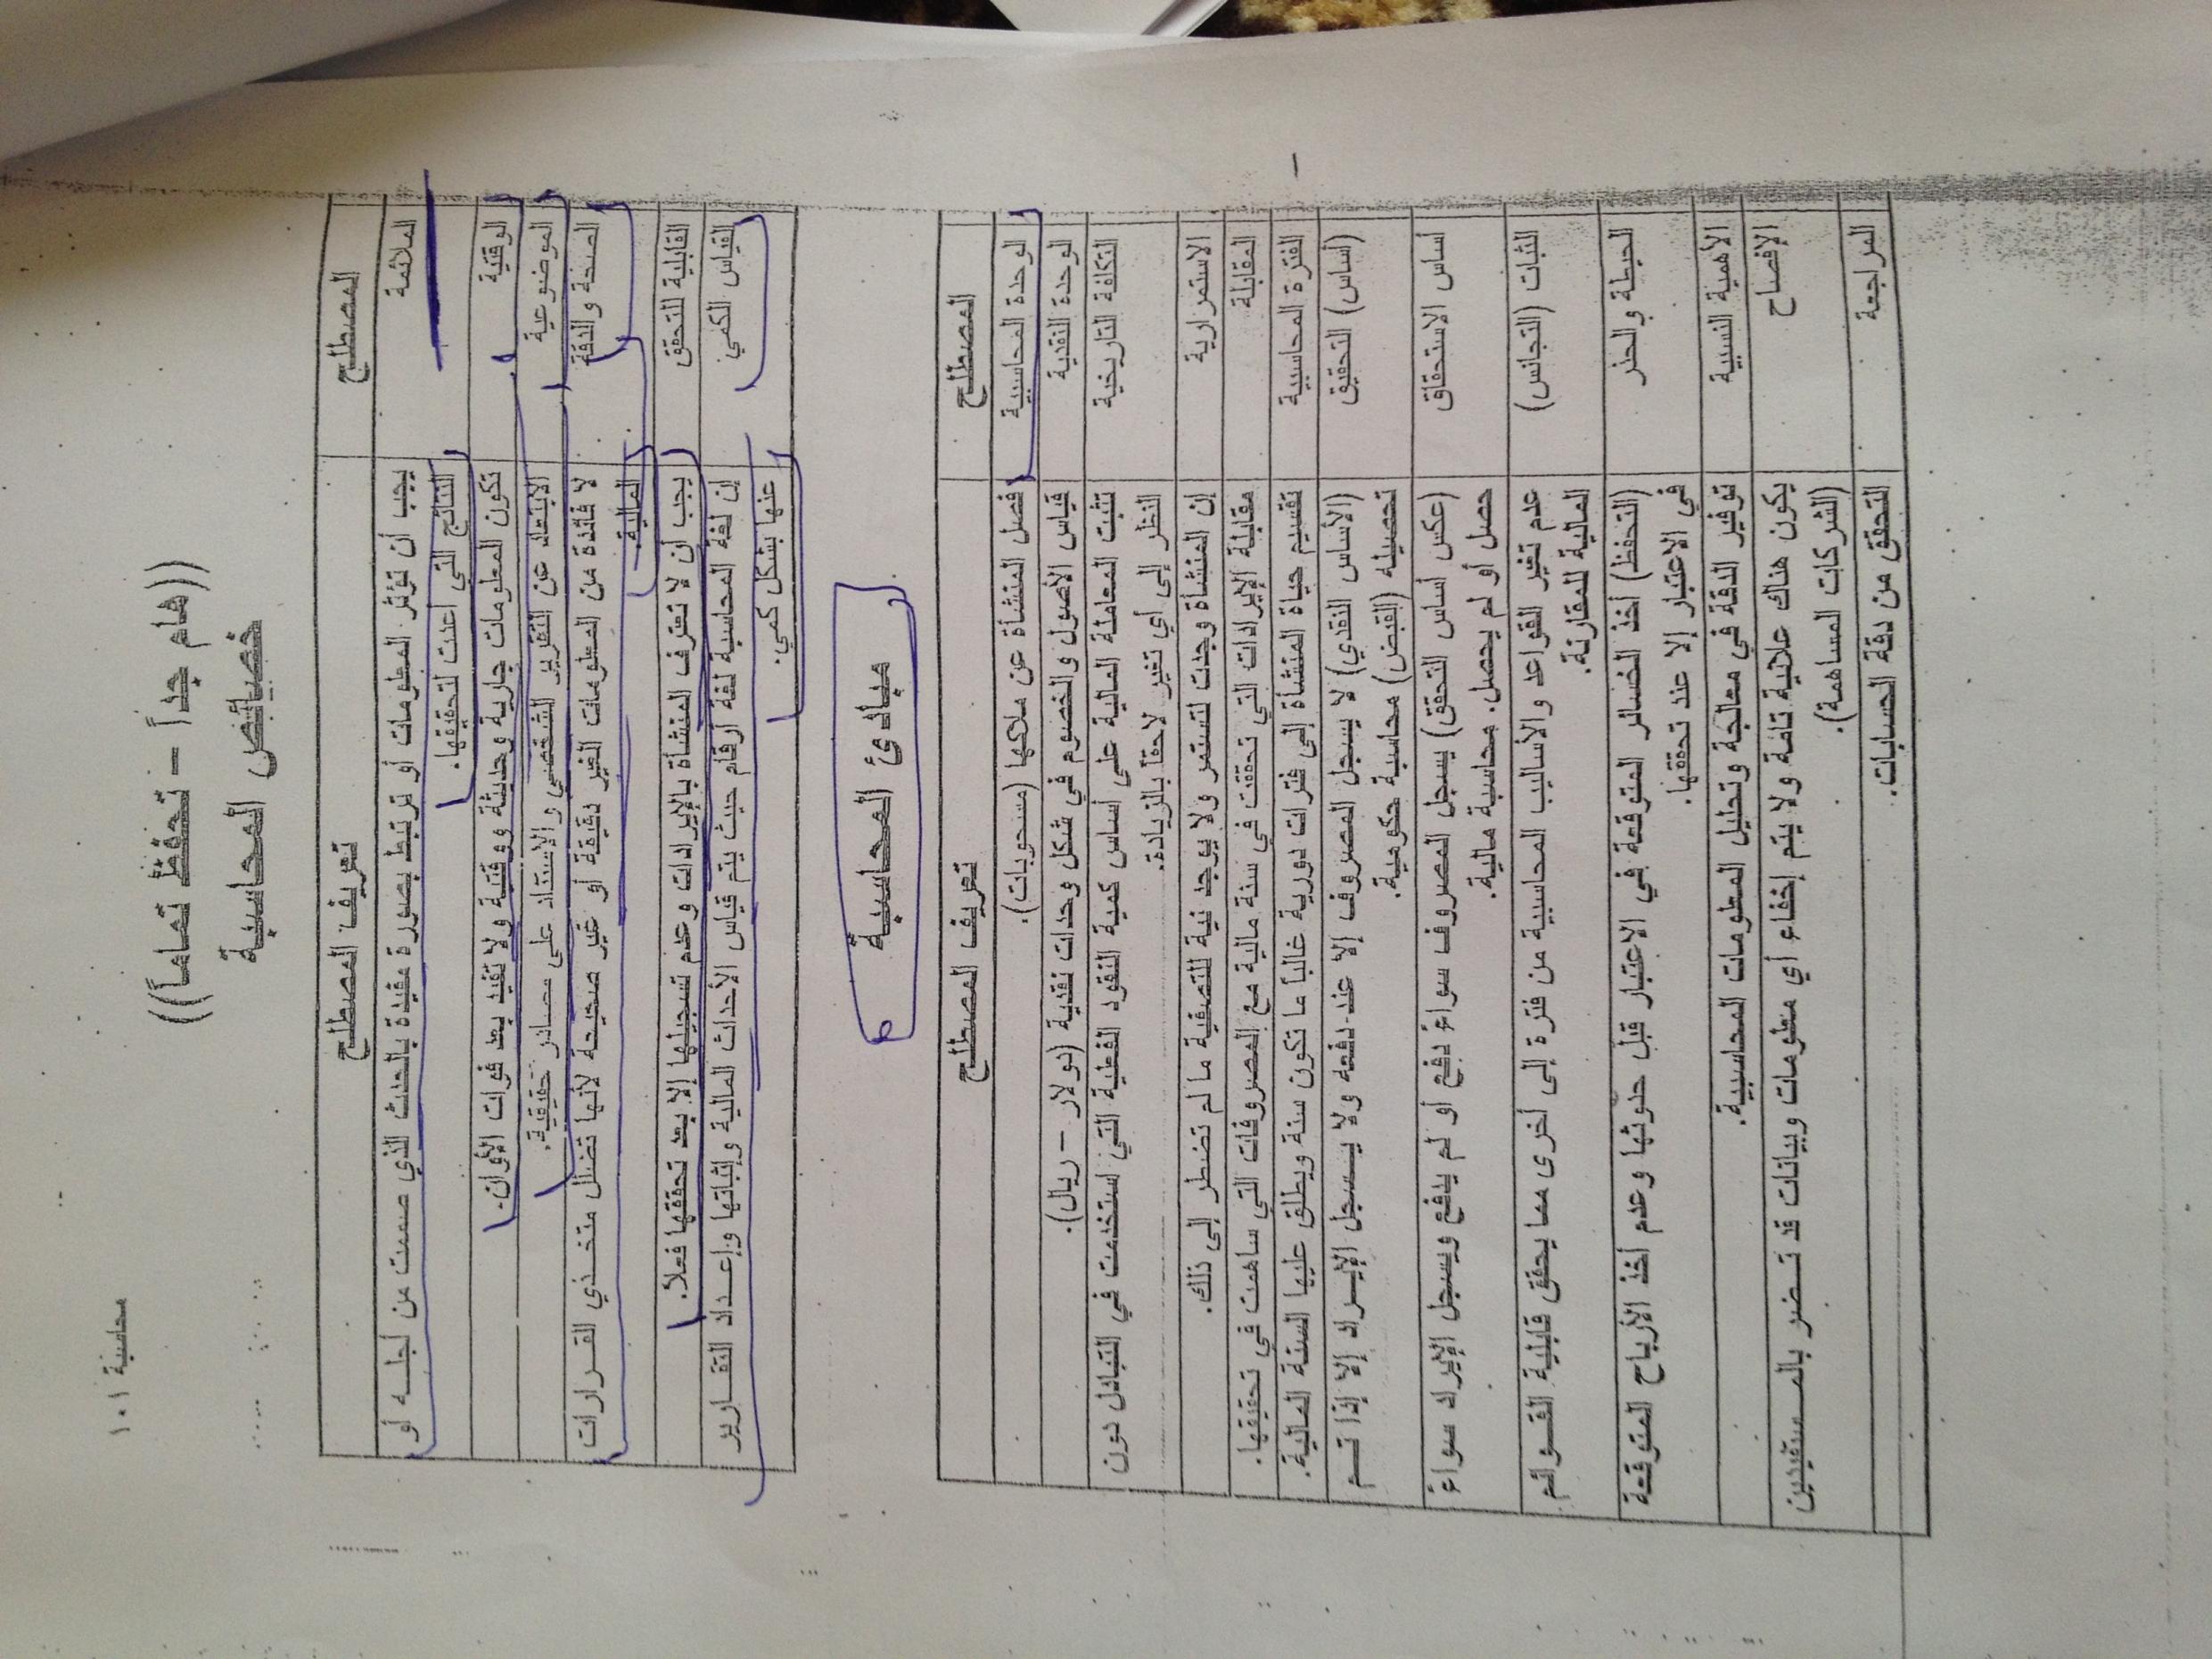 محاسبة ١٠١
((هام جداً – تحفظ تماماً))
خصائص المحاسبة
المصطلح
تعريف المصطلح
الملائمة
يجب أن تؤثر المعلومات أو ترتبط بصورة مفيدة بالحدث الذي صممت من أجله أو
النتائج التي أعدت لتحقيقها.
الوقتية
تكون المعلومات جارية وحديثة ووقتية ولا تفيد بعد فوات الأوان.
الموضوعية
الابتعاد عن التقرير الشخصي والاستناد على مصادر حقيقية.
الصحة والدقة
لا فائدة من المعلومات الغير دقيقة أو غير صحيحة لأنها تضلل متخذي القرارات
المالية.
القابلية للتحقق
يجب أن لا تعترف المنشأة بالإيرادات وعدم تسجيلها إلا بعد تحققها فعلاً.
القياس الكمي
إن لغة المحاسبة لغة أرقام حيث يتم قياس الأحداث المالية وإثباتها وإعداد التقارير
عنها بشكل كمي.
مبادئ المحاسبة
المصطلح
تعريف المصطلح
الوحدة المحاسبية
فصل المنشأة عن ملاكها (مسحوبات).
الوحدة النقدية
قياس الأصول والخصوم في شكل وحدات نقدية (دولار – ريال).
التكلفة التاريخية
تثبت المعاملة المالية على أساس كمية النقود الفعلية التي استخدمت في التبادل دون
النظر إلى أي تغير لاحقاً بالزيادة.
الاستمرارية
إن المنشأة وجدت لتستمر ولا يوجد نية للتصفية ما لم تضطر إلى ذلك.
المقابلة
مقابلة الإيرادات التي تحققت في سنة مالية مع المصروفات التي ساهمت في تحقيقها.
الفترة المحاسبية
تقسيم حياة المنشأة إلى فترات دورية غالباً ما تكون سنة ويطلق عليها السنة المالية.
(أساس) التحقيق
(الأساس النقدي) لا يسجل المصروف إلا عند دفعه ولا يسجل الإيراد إلا إذا تم
تحصيله (القبض) محاسبة حكومية.
أساس الاستحقاق
(عكس أساس التحقق) يسجل المصروف سواءً دفع أو لم يدفع ويسجل الإيراد سواءً
حصل أو لم يحصل. محاسبة مالية.
الثبات (التجانس)
عدم تغير القواعد والأساليب المحاسبية من فترة إلى أخرى مما يحقق قابلية القوائم
المالية للمقارنة.
الحيطة والحذر
(التحفظ) أخذ الخسائر المتوقعة في الاعتبار قبل حدوثها وعدم أخذ الأرباح المتوقعة
في الاعتبار إلا عند تحققها.
الأهمية النسبية
توفير الدقة في معالجة وتحليل المعلومات المحاسبية.
الإفصاح
يكون هناك علانية تامة ولا يتم إخفاء أي معلومات وبيانات قد تضر بالمستفيدين
(الشركات المساهمة).
المراجعة
التحقق من دقة الحسابات.